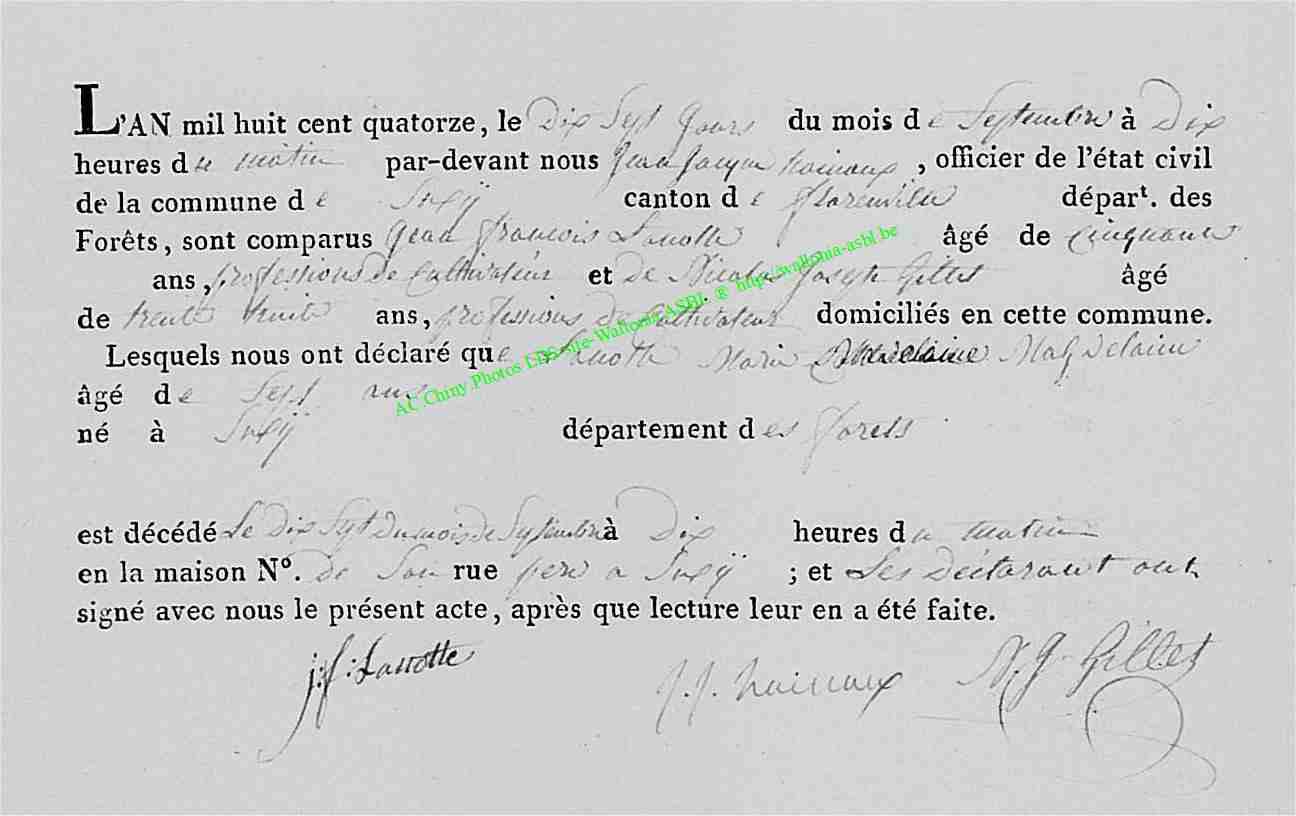 L'AN mil huit cent quatorze, le Dix Sept Jours du mois de Septembre à Dix
heures du matin par-devant nous Jean Jacque hainaux, officier de l'état civil
de la commune de Suxÿ canton de florenville départ. des
Forêts, sont comparus Jean francois Lanotte âgé de cinquante
ans, professions de Cultivateur et de Nicolas Joseph Gillet âgé
de trente huite ans, professions de Cultivateur domiciliés en cette commune.
Lesquels nous ont déclaré que Lanotte Marie Magdelaine
âgé de Sept ans
né à Suxÿ département des forets
est décédé Le Dix Sept Du mois de Septembre à Dix heures du matin
en la maison N°. de Son rue pere a Suxÿ ; et Les Déclarant ont
signé avec nous le présent acte, après que lecture leur en a été faite.
j:f: Lanotte J. J. hainaux N. J. Gillet
AC Chiny Photos LDS site-Wallonia ASBL ® http://wallonia-asbl.be